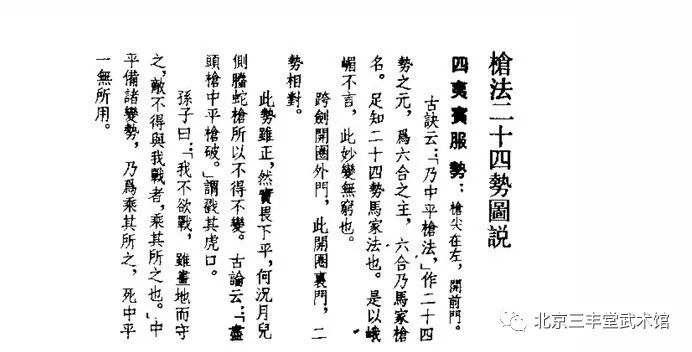 槍法二十四勢圖説
四夷賓服勢:槍尖在左,開前門。
古訣云:「乃中平槍法,」作二十四
勢之元,爲六合之主,六合乃馬家槍
名。足知二十四勢馬家法也。是以峨
嵋不言,此妙變無窮也。
跨劍開圈外門,此開圈裏門,二
勢相對。
此勢雖正,然實畏下平,何況月兒
側騰蛇槍所以不得不變。古論云:「盡
頭槍中平槍破。」謂戳其虎口。
孫子曰:「我不欲戰,雖畫地而守
之,敵不得與我戰者,乘其所之也。」中
平備諸變勢,乃爲乘其所之,死中平
一無所用。
北京三丰堂武术馆